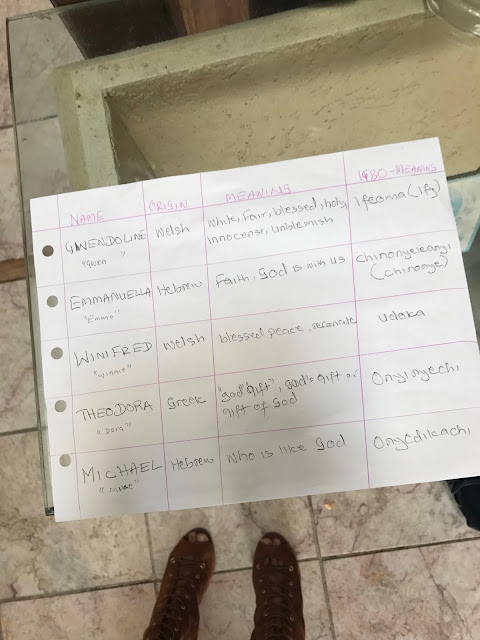 NAME ORIGIN MEANING IGBO-MEANING
GWENDOLINE Welsh White, Fair, blessed, holy, Ifeoma (Ify)
"Gwen" innocense, unblemish
EMMANUELLA Hebrew Faith, God is with us
"Emma" (Chinonye)
WINIFRED Welsh blessed peace, reconcile Udoka
"Winnie"
THEODORA Greek "god" "gift", God's gift or Onyinyechi
"Dora" gift of God
MICHAEL Hebrew Who is like God Onyedikachi
"Mike"